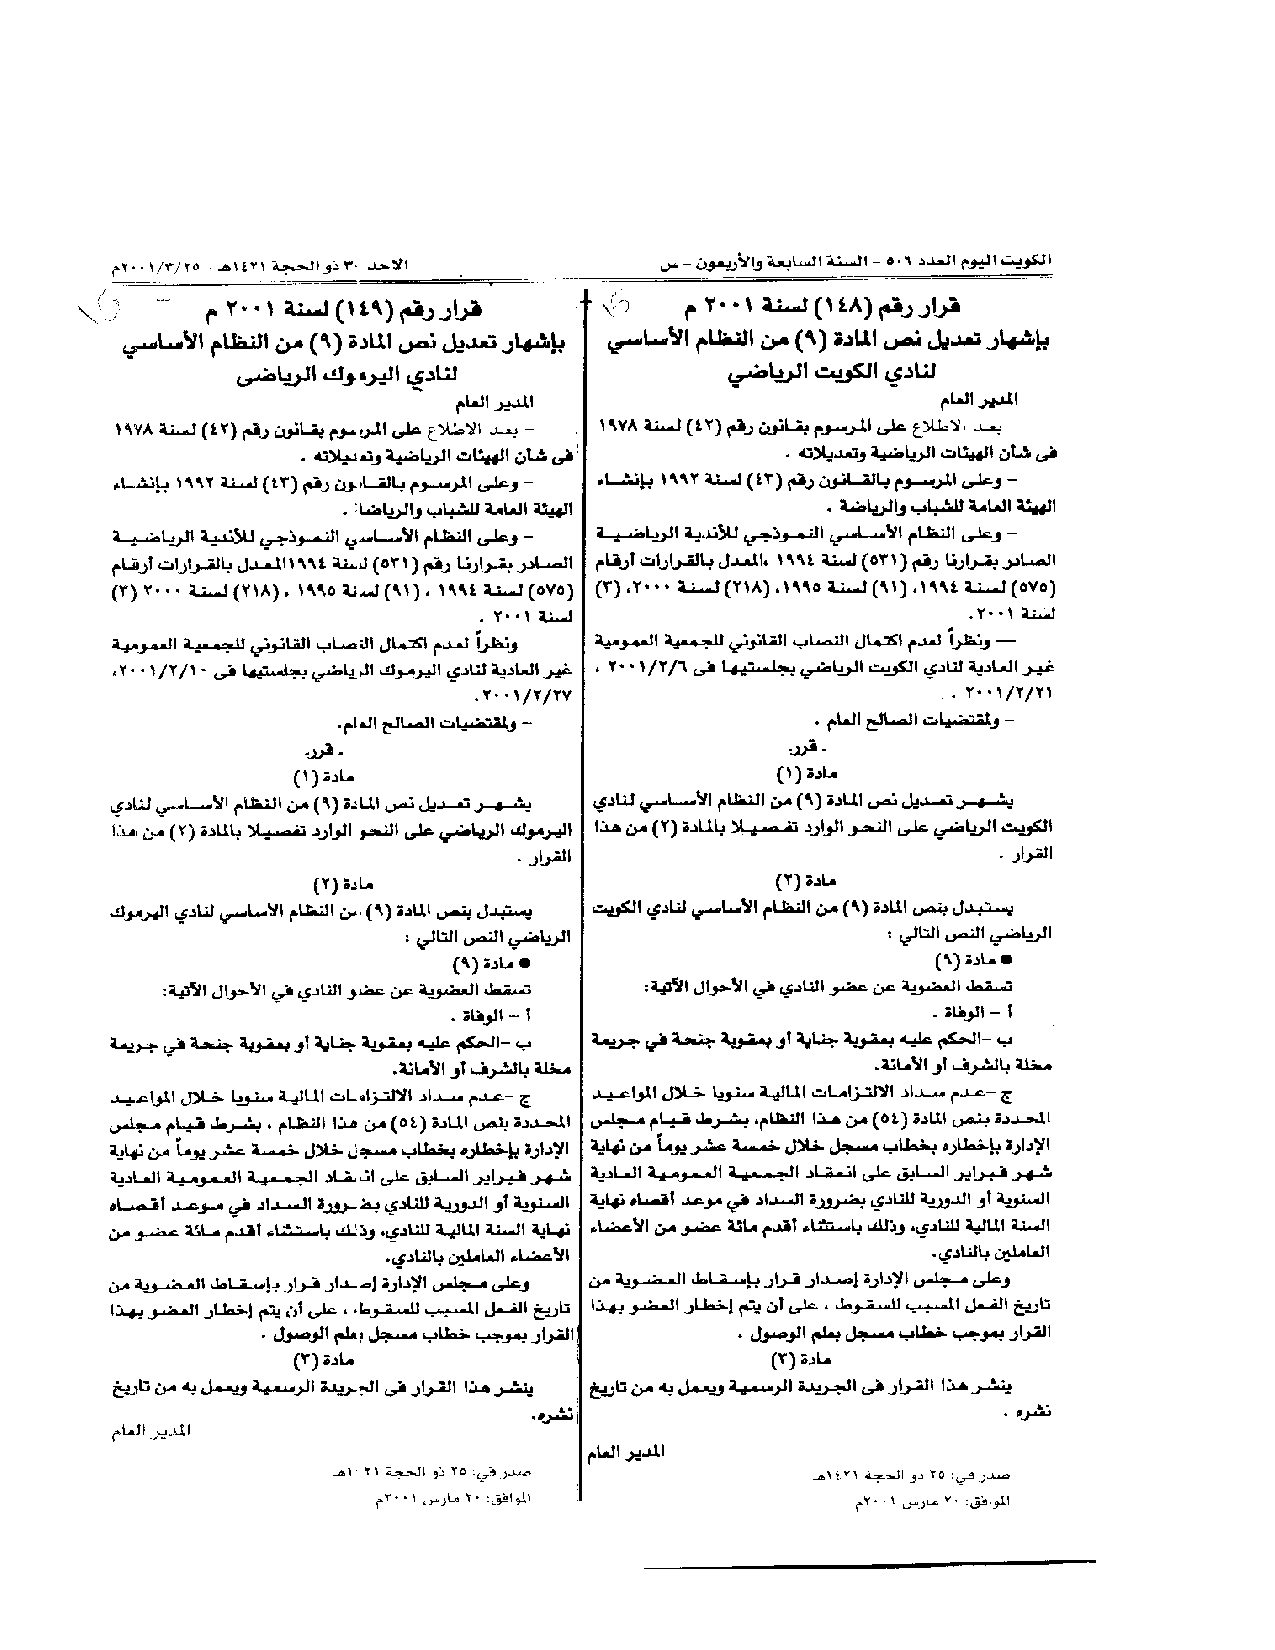 الكويت اليوم العدد ٥٠٦ - السنة السابعة والأربعون - س
الاحد ٣٠ ذو الحجة ١٤٢١هـ - ٢٠٠١/٣/٢٥م
قرار رقم (١٤٨) لسنة ٢٠٠١ م
بإشهار تعديل نص المادة (٩) من النظام الأساسي
لنادي الكويت الرياضي
المدير العام
بعد الاطلاع على المرسوم بقانون رقم (٤٢) لسنة ١٩٧٨
فى شأن الهيئات الرياضية وتعديلاته .
- وعلى المرسوم بالقانون رقم (٤٣) لسنة ١٩٩٢ بإنشاء
الهيئة العامة للشباب والرياضة .
- وعلى النظام الأساسي النموذجي للأندية الرياضية
الصادر بقرارنا رقم (٥٣١) لسنة ١٩٩٤ ،المعدل بالقرارات أرقام
(٥٧٥) لسنة ١٩٩٤، (٩١) لسنة ١٩٩٥، (٢١٨) لسنة ٢٠٠٠، (٣)
لسنة ٢٠٠١.
— ونظراً لعدم اكتمال النصاب القانوني للجمعية العمومية
غير العادية لنادي الكويت الرياضي بجلستيها فى ٢٠٠١/٢/٦ ،
٢٠٠١/٢/٢١ .
- ولمقتضيات الصالح العام .
- قرر:
مادة (١)
يشهر تعديل نص المادة (٩) من النظام الأساسي لنادي
الكويت الرياضي على النحو الوارد تفصيلا بالمادة (٢) من هذا
القرار .
مادة (٢)
يستبدل بنص المادة (٩) من النظام الأساسي لنادي الكويت
الرياضي النص التالي :
● مادة (٩)
تسقط العضوية عن عضو النادي في الأحوال الآتية:
أ - الوفاة .
ب -الحكم عليه بعقوبة جناية أو بعقوبة جنحة في جريمة
مخلة بالشرف أو الأمانة.
ج -عدم سداد الالتزامات المالية سنويا خلال المواعيد
المحددة بنص المادة (٥٤) من هذا النظام، بشرط قيام مجلس
الإدارة بإخطاره بخطاب مسجل خلال خمسة عشر يوماً من نهاية
شهر فبراير السابق على انعقاد الجمعية العمومية العادية
السنوية أو الدورية للنادي بضرورة السداد في موعد أقصاه نهاية
السنة المالية للنادي، وذلك باستثناء أقدم مائة عضو من الأعضاء
العاملين بالنادي.
وعلى مجلس الإدارة إصدار قرار بإسقاط العضوية من
تاريخ الفعل المسبب للسقوط ، على أن يتم إخطار العضو بهذا
القرار بموجب خطاب مسجل بعلم الوصول .
مادة (٣)
ينشر هذا القرار فى الجريدة الرسمية ويعمل به من تاريخ
نشره .
المدير العام
صدر في: ٢٥ ذو الحجة ١٤٢١هـ
الموافق: ٢٠ مارس ٢٠٠١م
قرار رقم (١٤٩) لسنة ٢٠٠١ م
بإشهار تعديل نص المادة (٩) من النظام الأساسي
لنادي اليرموك الرياضى
المدير العام
- بعد الاطلاع على المرسوم بقانون رقم (٤٢) لسنة ١٩٧٨
فى شأن الهيئات الرياضية وتعديلاته .
- وعلى المرسوم بالقانون رقم (٤٣) لسنة ١٩٩٢ بإنشاء
الهيئة العامة للشباب والرياضة .
- وعلى النظام الأساسي النموذجي للأندية الرياضية
الصادر بقرارنا رقم (٥٣١) لسنة ١٩٩٤ المعدل بالقرارات أرقام
(٥٧٥) لسنة ١٩٩٤ ، (٩١) لسنة ١٩٩٥ ، (٢١٨) لسنة ٢٠٠٠ (٣)
لسنة ٢٠٠١ .
ونظراً لعدم اكتمال النصاب القانوني للجمعية العمومية
غير العادية لنادي اليرموك الرياضي بجلستيها فى ٢٠٠١/٢/١٠،
٢٠٠١/٢/٢٧.
- ولمقتضيات الصالح العام.
- قرر:
مادة (١)
يشهر تعديل نص المادة (٩) من النظام الأساسي لنادي
اليرموك الرياضي على النحو الوارد تفصيلا بالمادة (٢) من هذا
القرار .
مادة (٢)
يستبدل بنص المادة (٩) من النظام الأساسي لنادي اليرموك
الرياضي النص التالي :
● مادة (٩)
تسقط العضوية عن عضو النادي في الأحوال الآتية:
أ - الوفاة .
ب -الحكم عليه بعقوبة جناية أو بعقوبة جنحة في جريمة
مخلة بالشرف أو الأمانة.
ج -عدم سداد الالتزامات المالية سنويا خلال المواعيد
المحددة بنص المادة (٥٤) من هذا النظام ، بشرط قيام مجلس
الإدارة بإخطاره بخطاب مسجل خلال خمسة عشر يوماً من نهاية
شهر فبراير السابق على انعقاد الجمعية العمومية العادية
السنوية أو الدورية للنادي بضرورة السداد في موعد أقصاه
نهاية السنة المالية للنادي، وذلك باستثناء أقدم مائة عضو من
الأعضاء العاملين بالنادي.
وعلى مجلس الإدارة إصدار قرار بإسقاط العضوية من
تاريخ الفعل المسبب للسقوط، ، على أن يتم إخطار العضو بهذا
القرار بموجب خطاب مسجل بعلم الوصول .
مادة (٣)
ينشر هذا القرار فى الجريدة الرسمية ويعمل به من تاريخ
نشره.
المدير العام
صدر في: ٢٥ ذو الحجة ١٤٢١هـ
الموافق: ٢٠ مارس ٢٠٠١م